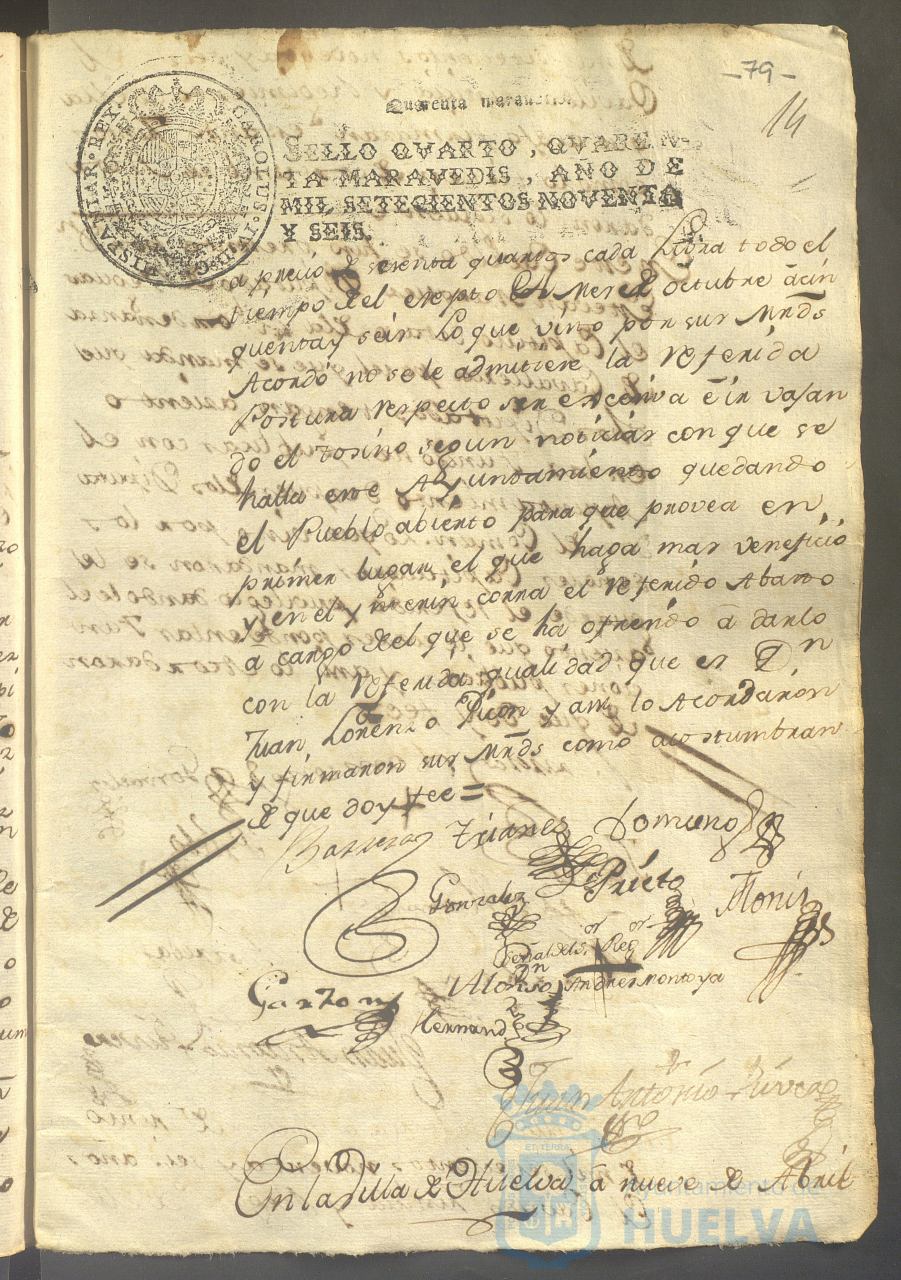 -79-
14
Quarenta maravedis.
SELLO QVARTO, QVAREN-
TA MARAVEDIS, AÑO DE
MIL SETECIENTOS NOVENTA
Y SEIS.
CAROLUS · IV · D · G · HISPANIAR · REX
a precio de sesenta quartos cada Libra todo el
tiempo del exepto el Mes de octubre a cin
quenta y seis Lo que visto por sus Mrds
Acordò no se le admitiese la referida
Postura respecto ser excesiva è ir vajan
do el tosino segun noticias con que se
halla este Ayuntamiento quedando
el Pueblo abierto para que provea en
primer lugar el que haga mas veneficio
y en el Ynterin corra el referido Abasto
a cargo del que se ha ofresido à darlo
con la referida igualidad que es Dn
Juan Lorenzo Picon y asi lo Acordaron
y firmaron sus Mrds como acostumbran
de que doy fee =
Barrera Trianes Romero
Gonzalez Prieto Monis
Señal del Sor Regor
Garzon Alonso Andres Montoya
Hernandz
Juan Antonio Rivera
En la Villa de Huelva à nueve de Abril
Ayuntamiento de
HUELVA